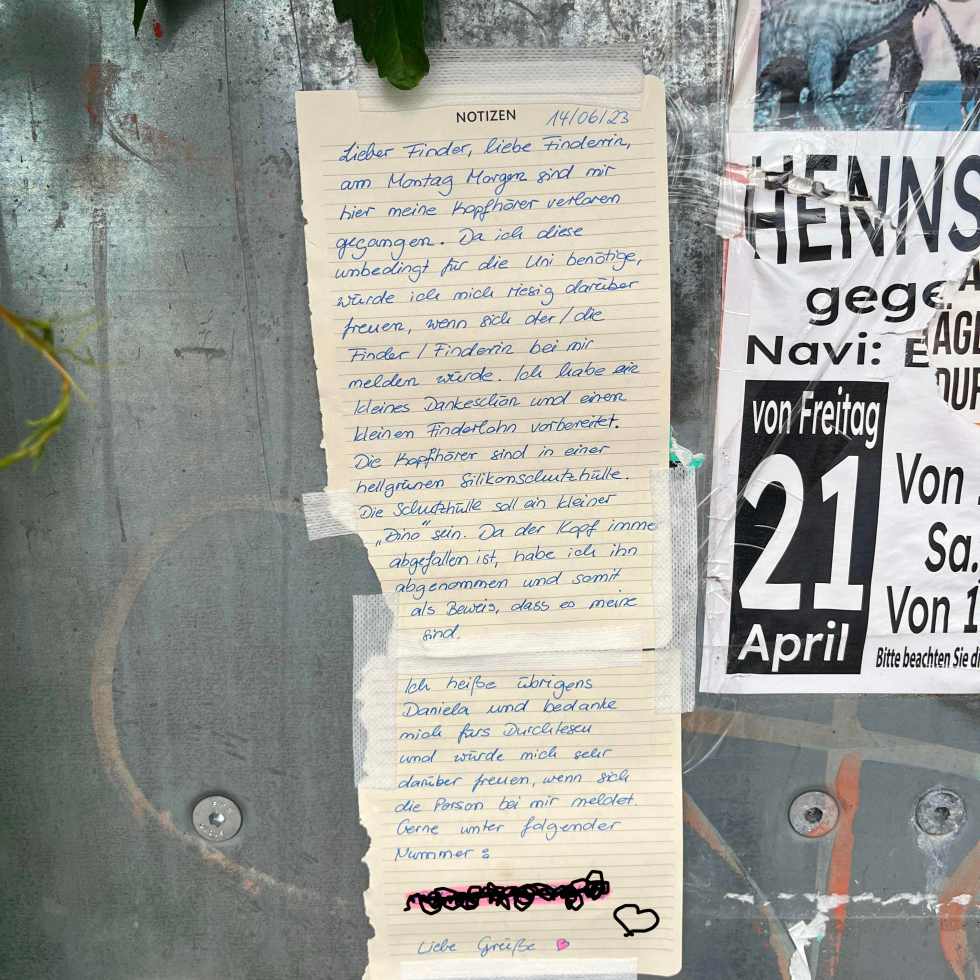 NOTIZEN 14/06/23
Lieber Finder, liebe Finderin,
am Montag Morgen sind mir
hier meine Kopfhörer verloren
gegangen. Da ich diese
unbedingt für die Uni benötige,
würde ich mich riesig darüber
freuen, wenn sich der/die
Finder/Finderin bei mir
melden würde. Ich habe ein
kleines Dankeschön und einen
kleinen Finderlohn vorbereitet.
Die Kopfhörer sind in einer
hellgrünen Silikonschutzhülle.
Die Schutzhülle soll ein kleiner
„Dino" sein. Da der Kopf imme
abgefallen ist, habe ich ihn
abgenommen und somit
als Beweis, dass es meine
sind.
Ich heiße übrigens
Daniela und bedanke
mich fürs Durchlesen
und würde mich sehr
darüber freuen, wenn sich
die Person bei mir meldet.
Gerne unter folgender
Nummer:
Liebe Grüße
HENNS
gege
Navi: E
ÄGL
DUR
von Freitag
21
April
Von
Sa.
Von 1
Bitte beachten Sie di